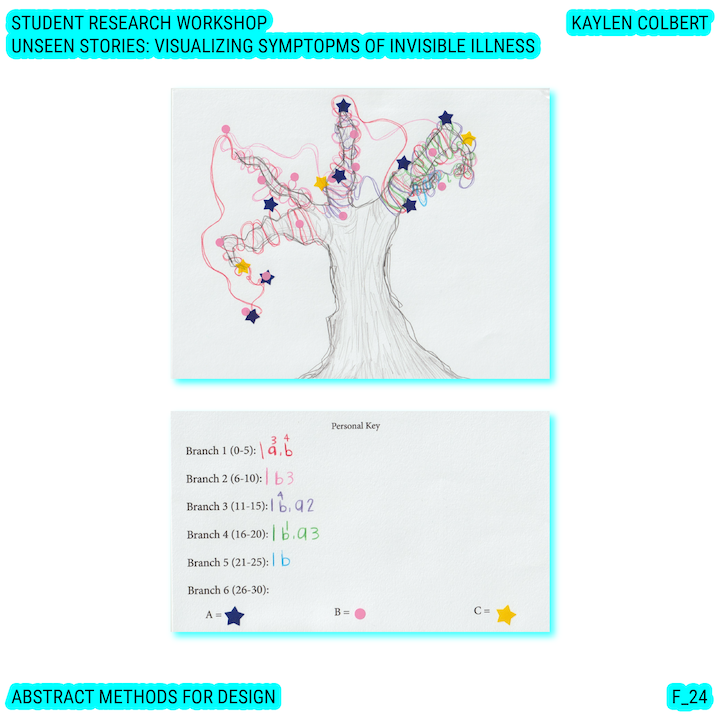 STUDENT RESEARCH WORKSHOP
KAYLEN COLBERT
UNSEEN STORIES: VISUALIZING SYMPTOPMS OF INVISIBLE ILLNESS
Personal Key
Branch 1 (0-5): | a³, b⁴
Branch 2 (6-10): | b3
Branch 3 (11-15): | b⁴, a2
Branch 4 (16-20): | b¹, a3
Branch 5 (21-25): | b
Branch 6 (26-30):
A = B = C =
ABSTRACT METHODS FOR DESIGN
F_24